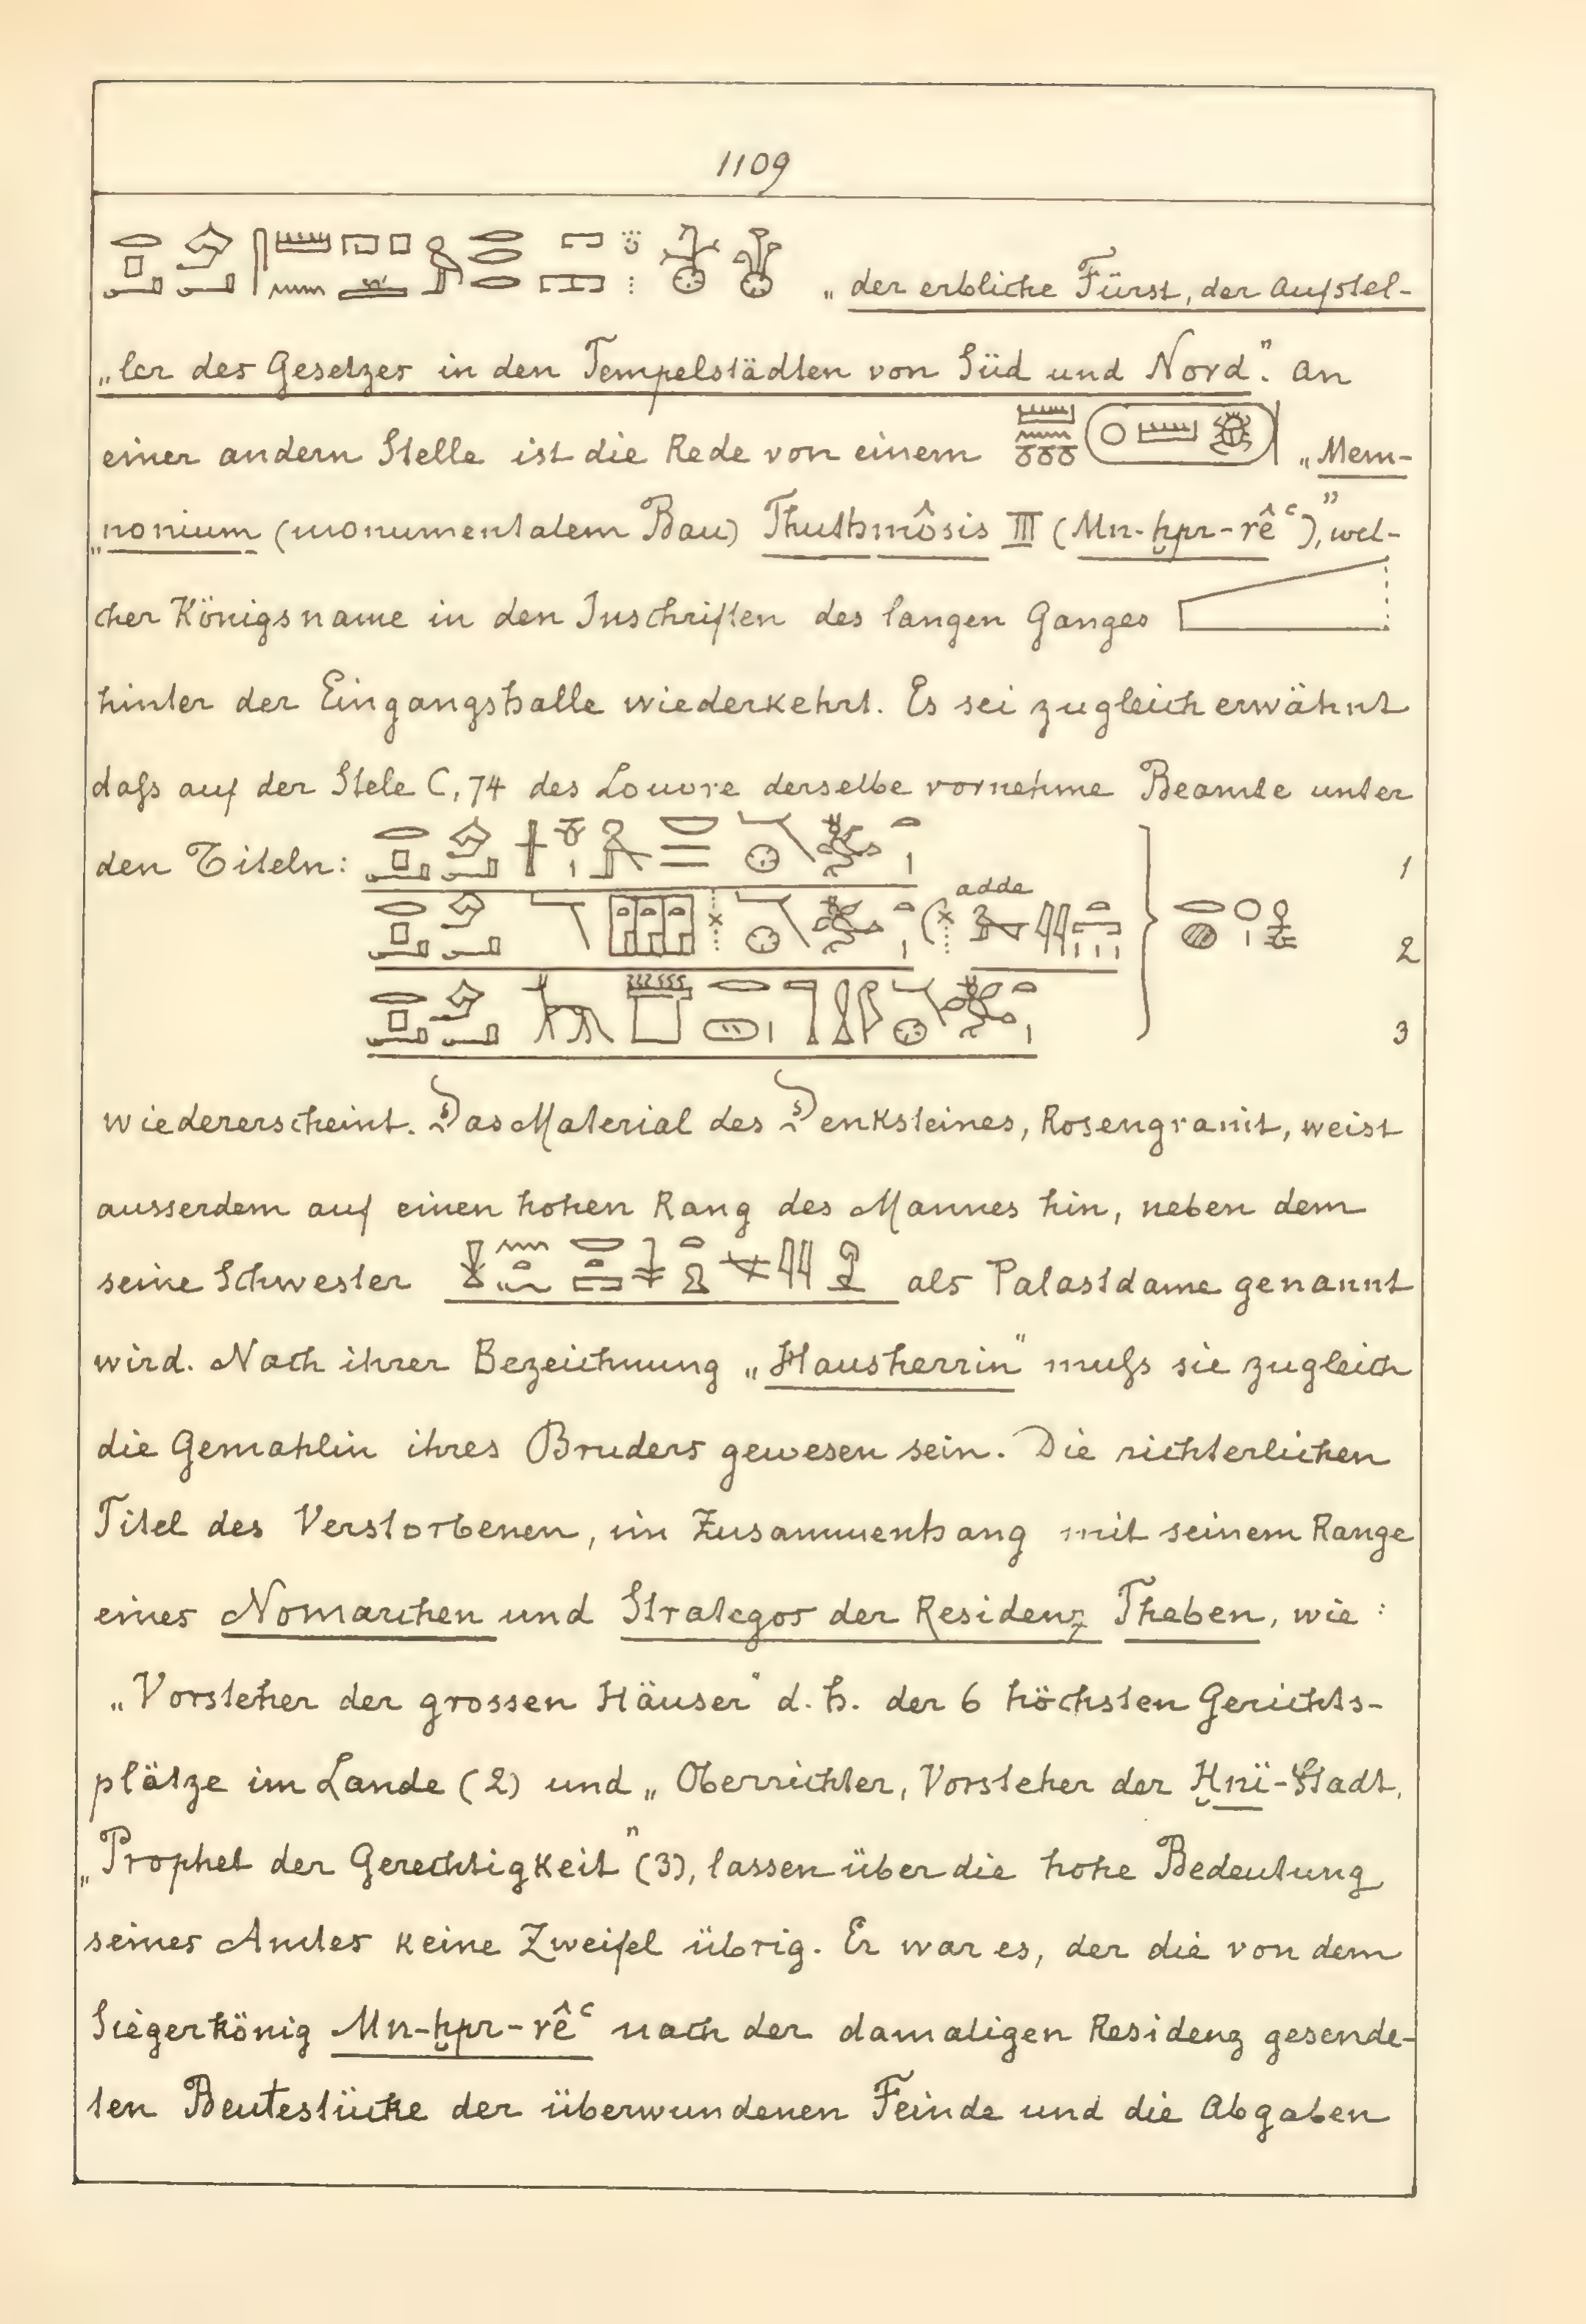 1109
„der erbliche Fürst, der Aufstel-
„ler des Gesetzes in den Tempelstädten von Süd und Nord". An
einer andern Stelle ist die Rede von einem „Mem-
„nonium (monumentalem Bau) Thuthmôsis III (Mn-ḫpr-rêʿ)", wel-
cher Königsname in den Inschriften des langen Ganges
hinter der Eingangshalle wiederkehrt. Es sei zugleich erwähnt
daſs auf der Stele C, 74 des Louvre derselbe vornehme Beamte unter
den Titeln: 1
adde 2
3
wiedererscheint. Das Material des Denksteines, Rosengranit, weist
ausserdem auf einen hohen Rang des Mannes hin, neben dem
seine Schwester als Palastdame genannt
wird. Nach ihrer Bezeichnung „Hausherrin" muſs sie zugleich
die Gemahlin ihres Bruders gewesen sein. Die richterlichen
Titel des Verstorbenen, im Zusammenhang mit seinem Range
eines Nomarchen und Strategos der Residenz Theben, wie:
„Vorsteher der grossen Häuser" d. h. der 6 höchsten Gerichts-
plätze im Lande (2) und „Oberrichter, Vorsteher der Ḫnï-Stadt,
„Prophet der Gerechtigkeit" (3), lassen über die hohe Bedeutung
seines Amtes keine Zweifel übrig. Er war es, der die von dem
Siegerkönig Mn-ḫpr-rêʿ nach der damaligen Residenz gesende-
ten Beutestücke der überwundenen Feinde und die Abgaben